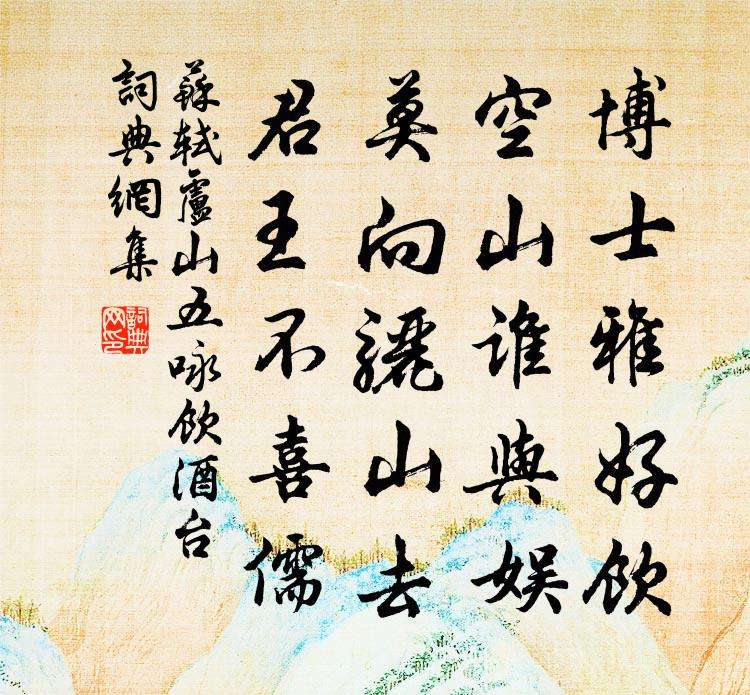 博士雅好飲
空山誰與娛
莫向驪山去
君王不喜儒
蘇軾盧山五咏飲酒台
詞典網集
詞典網印